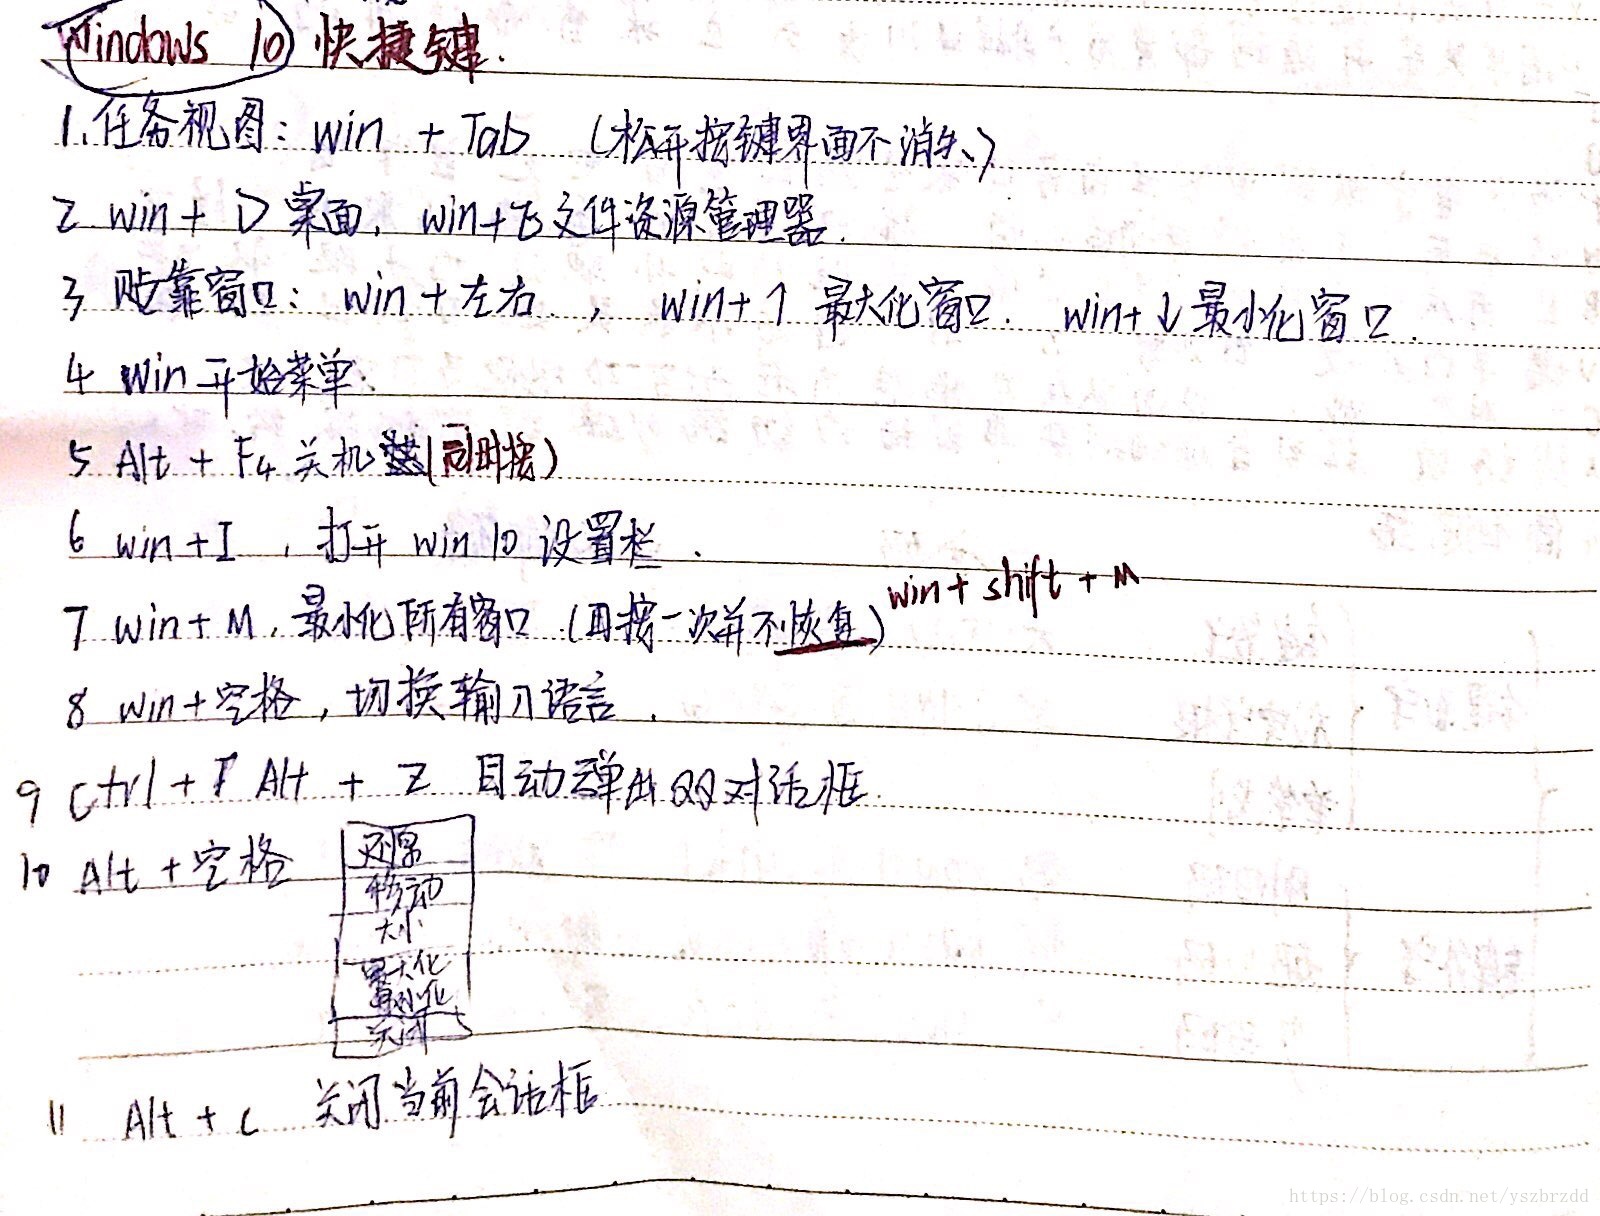 Windows 10 快捷键.
1.任务视图: win + Tab (松开按键界面不消失)
2 win + D 桌面, win+E 文件资源管理器.
3 贴靠窗口: win + 左右 , win+↑ 最大化窗口. win+↓最小化窗口.
4 Win 开始菜单.
5 Alt + F4 关机 (同时按)
6 win+I , 打开 win 10 设置栏 .
7 win+M, 最小化所有窗口 (再按一次并不恢复) win+shift+M
8 win+空格, 切换输入语言 .
9 Ctrl + Alt + Z 自动弹出QQ对话框.
10 Alt +空格
还原
移动
大小
最大化
最小化
关闭
11 Alt + c 关闭当前会话框
https://blog.csdn.net/yszbrzdd